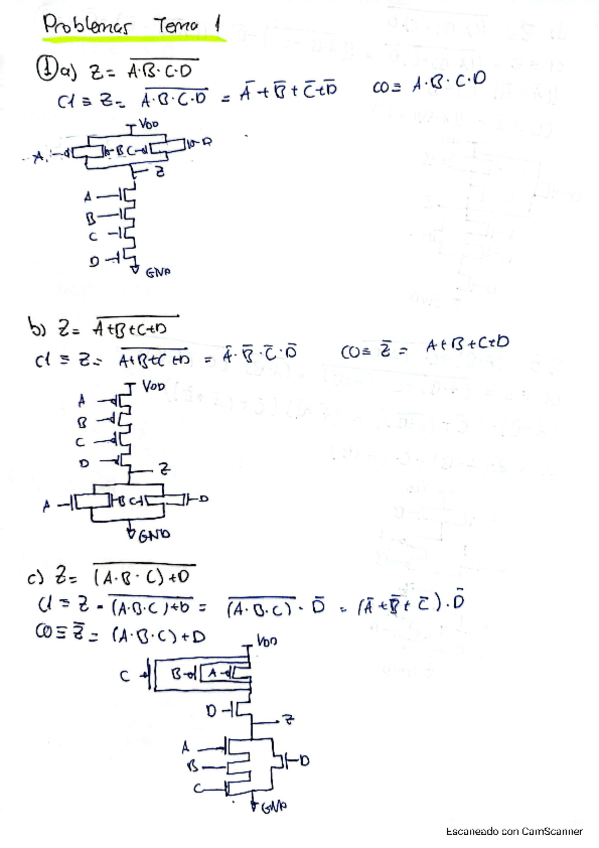 Problemas Tema 1
① a) Z = \overline{A·B·C·D}
C1 ≡ Z = \overline{A·B·C·D} = Ā + B̄ + C̄ + D̄   C0 ≡ A·B·C·D
VDD
A B C D
Z
A
B
C
D
GND
b) Z = \overline{A+B+C+D}
C1 ≡ Z = \overline{A+B+C+D} = Ā·B̄·C̄·D̄   C0 ≡ Z̄ = A+B+C+D
VDD
A
B
C
D
Z
A B C D
GND
c) Z = \overline{(A·B·C)+D}
C1 ≡ Z = \overline{(A·B·C)+D} = \overline{(A·B·C)}·D̄ = (Ā+B̄+C̄)·D̄
C0 ≡ Z̄ = (A·B·C)+D
VDD
C B A
D
Z
A
B D
C
GND
Escaneado con CamScanner